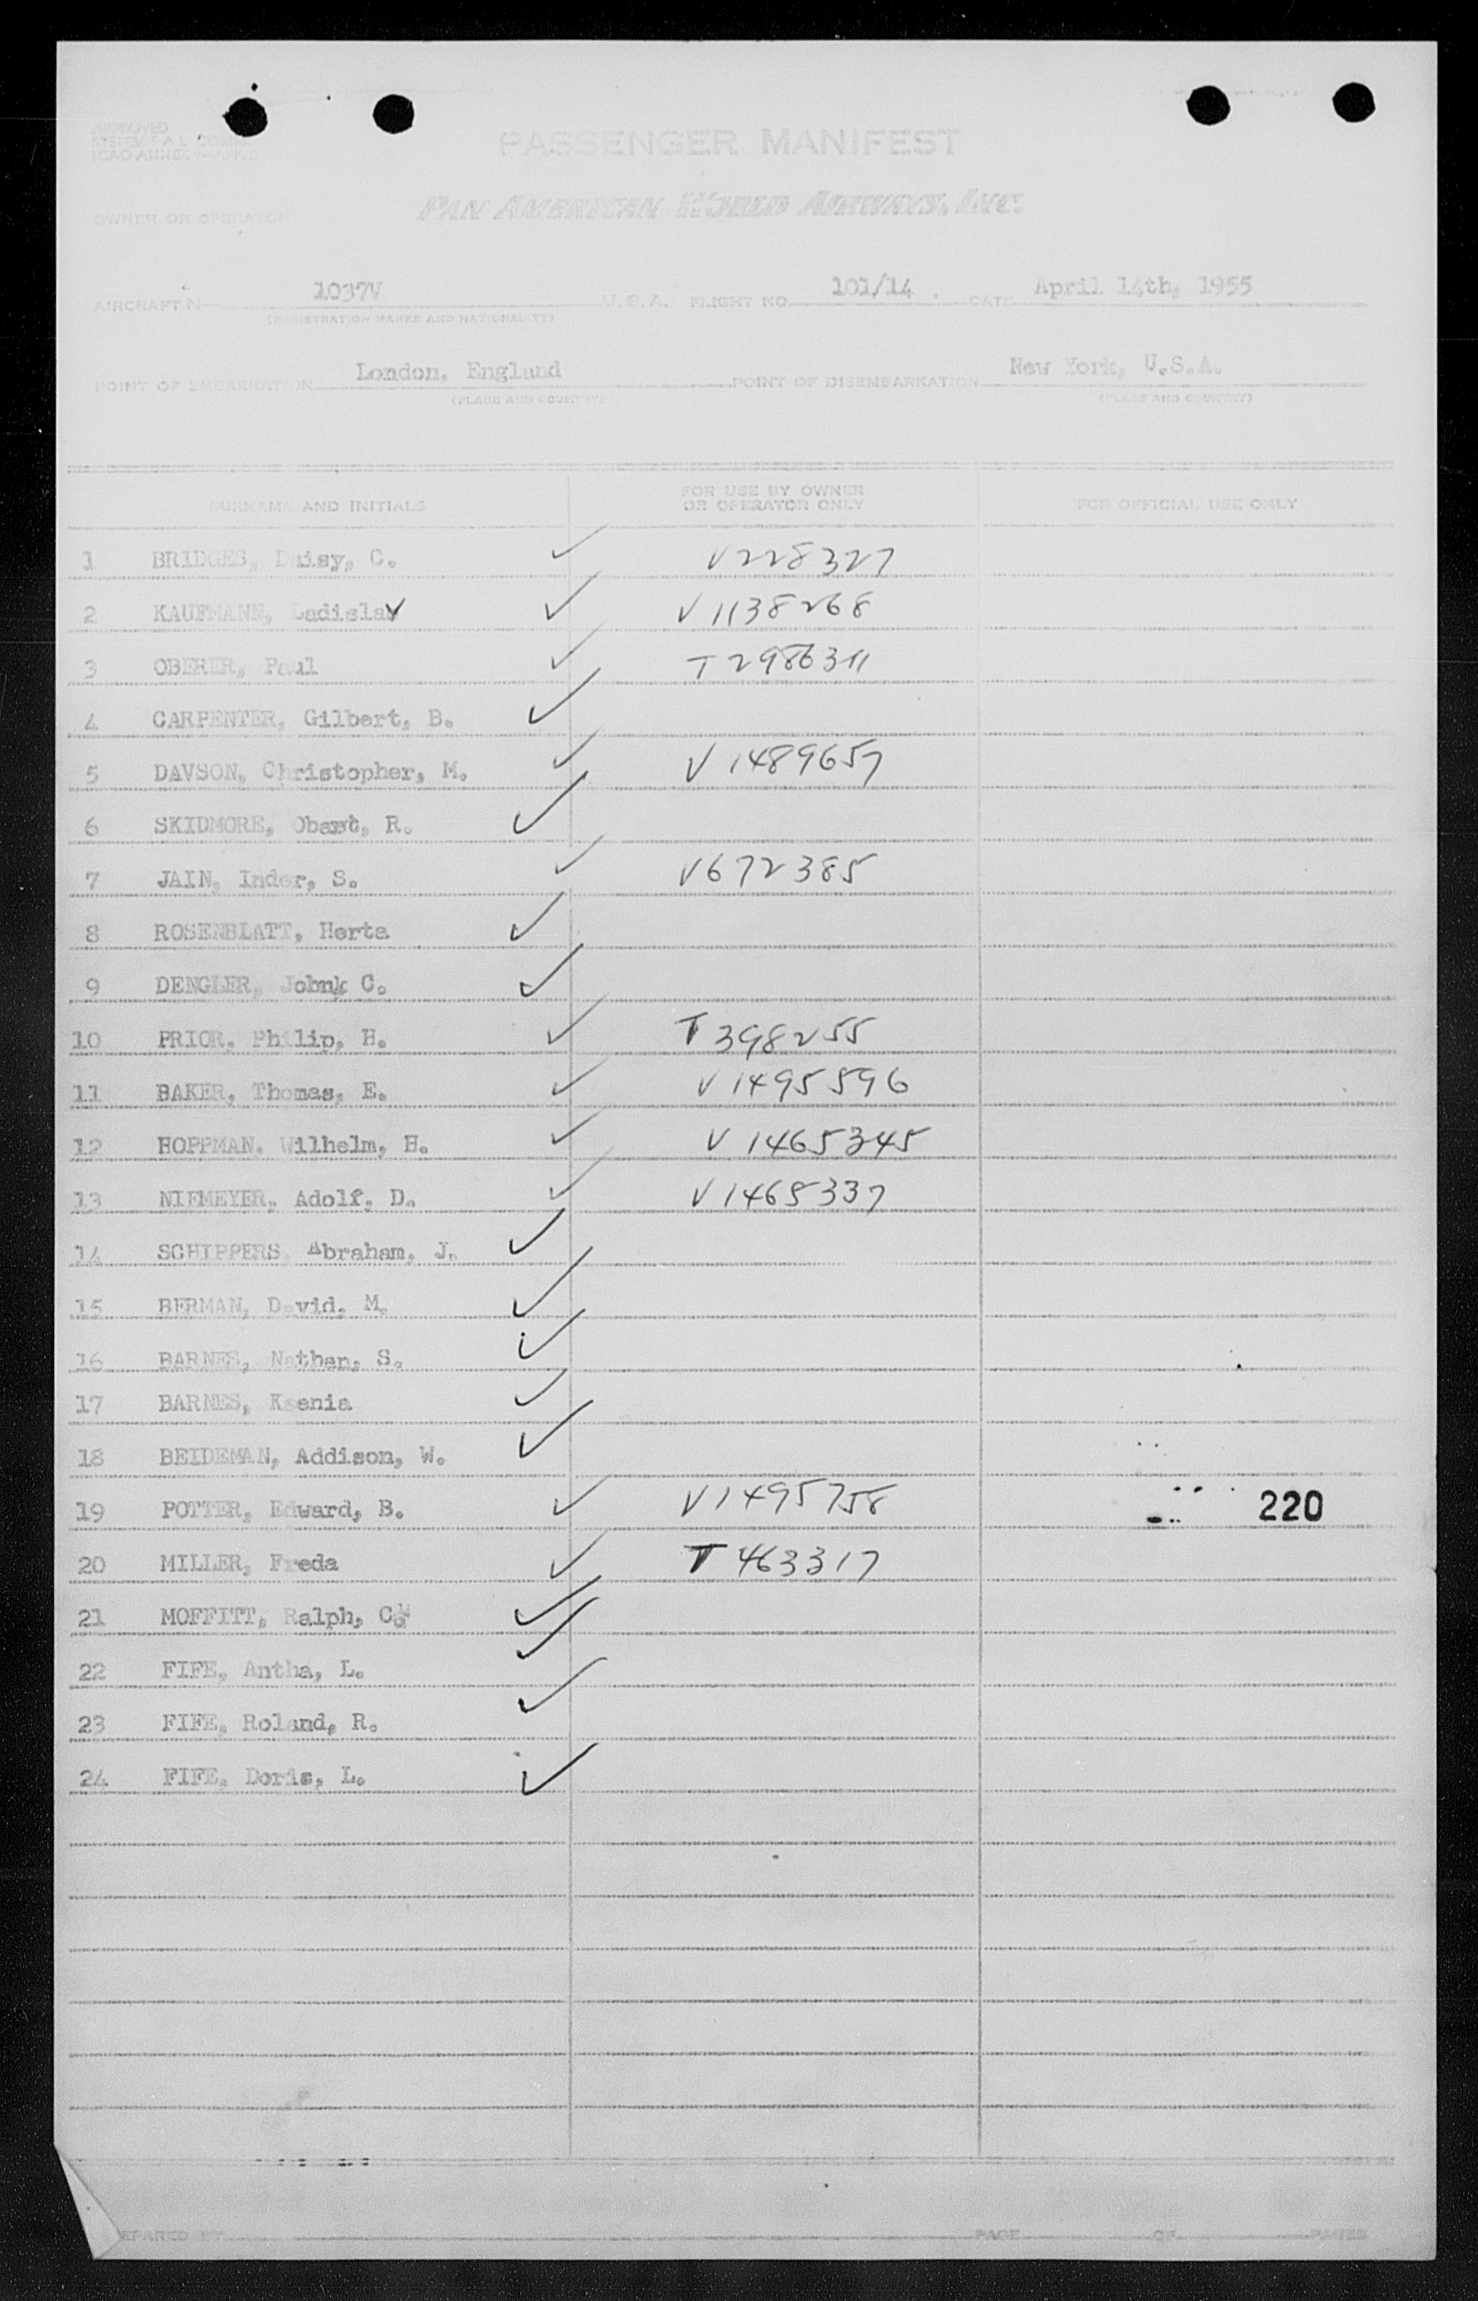 APPROVED
PASSENGER MANIFEST
OWNER OR OPERATOR PAN AMERICAN WORLD AIRWAYS, INC.
AIRCRAFT N 1037V U.S.A. FLIGHT NO. 101/14 DATE April 14th, 1955
(REGISTRATION MARKS AND NATIONALITY)
POINT OF EMBARKATION London, England POINT OF DISEMBARKATION New York, U.S.A.
(PLACE AND COUNTRY) (PLACE AND COUNTRY)
SURNAME AND INITIALS FOR USE BY OWNER OR OPERATOR ONLY FOR OFFICIAL USE ONLY
1 BRIDGES, Daisy, C. ✓ V228327
2 KAUFMANN, Ladislav ✓ V1138268
3 OBERER, Paul ✓ T2986311
4 CARPENTER, Gilbert, B. ✓
5 DAVSON, Christopher, M. ✓ V1489657
6 SKIDMORE, R. ✓
7 JAIN, Inder, S. ✓ V672385
8 ROSENBLATT, Herta ✓
9 DENGLER, John, C. ✓
10 PRIOR, Philip, H. ✓ T398255
11 BAKER, Thomas, E. ✓ V1495596
12 HOPPMAN, Wilhelm, H. ✓ V1465345
13 NIEMEYER, Adolf, D. ✓ V1465337
14 SCHIPPERS, Abraham, J. ✓
15 BERMAN, David, M. ✓
16 BARNES, Nathan, S. ✓
17 BARNES, Ksenia ✓
18 BEIDEMAN, Addison, W. ✓
19 POTTER, Edward, B. ✓ V1495758 220
20 MILLER, Freda ✓ T463317
21 MOFFITT, Ralph, ✓
22 FIFE, Antha, L. ✓
23 FIFE, Roland, R. ✓
24 FIFE, Doris, L. ✓
PAGE OF PAGES